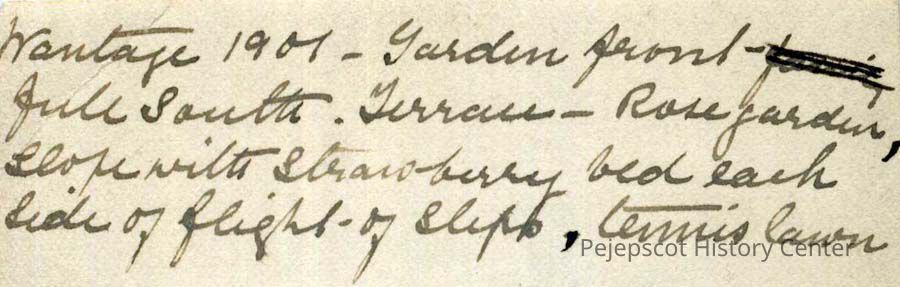 Wantage 1901 - Garden front -
full South. Terrace - Rose garden,
slope with strawberry bed each
side of flight of steps, tennis lawn
Pejepscot History Center